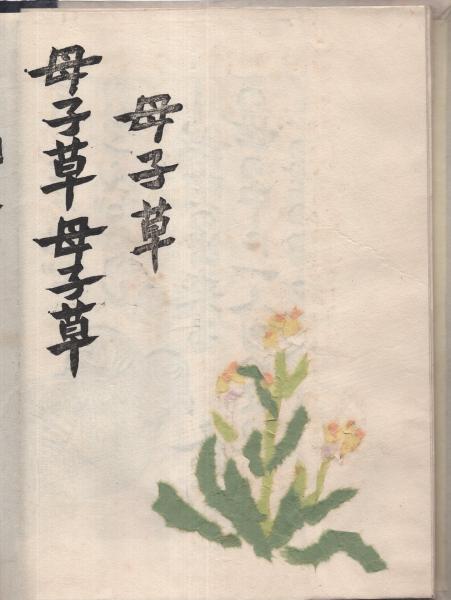 母子草
母子草母子草